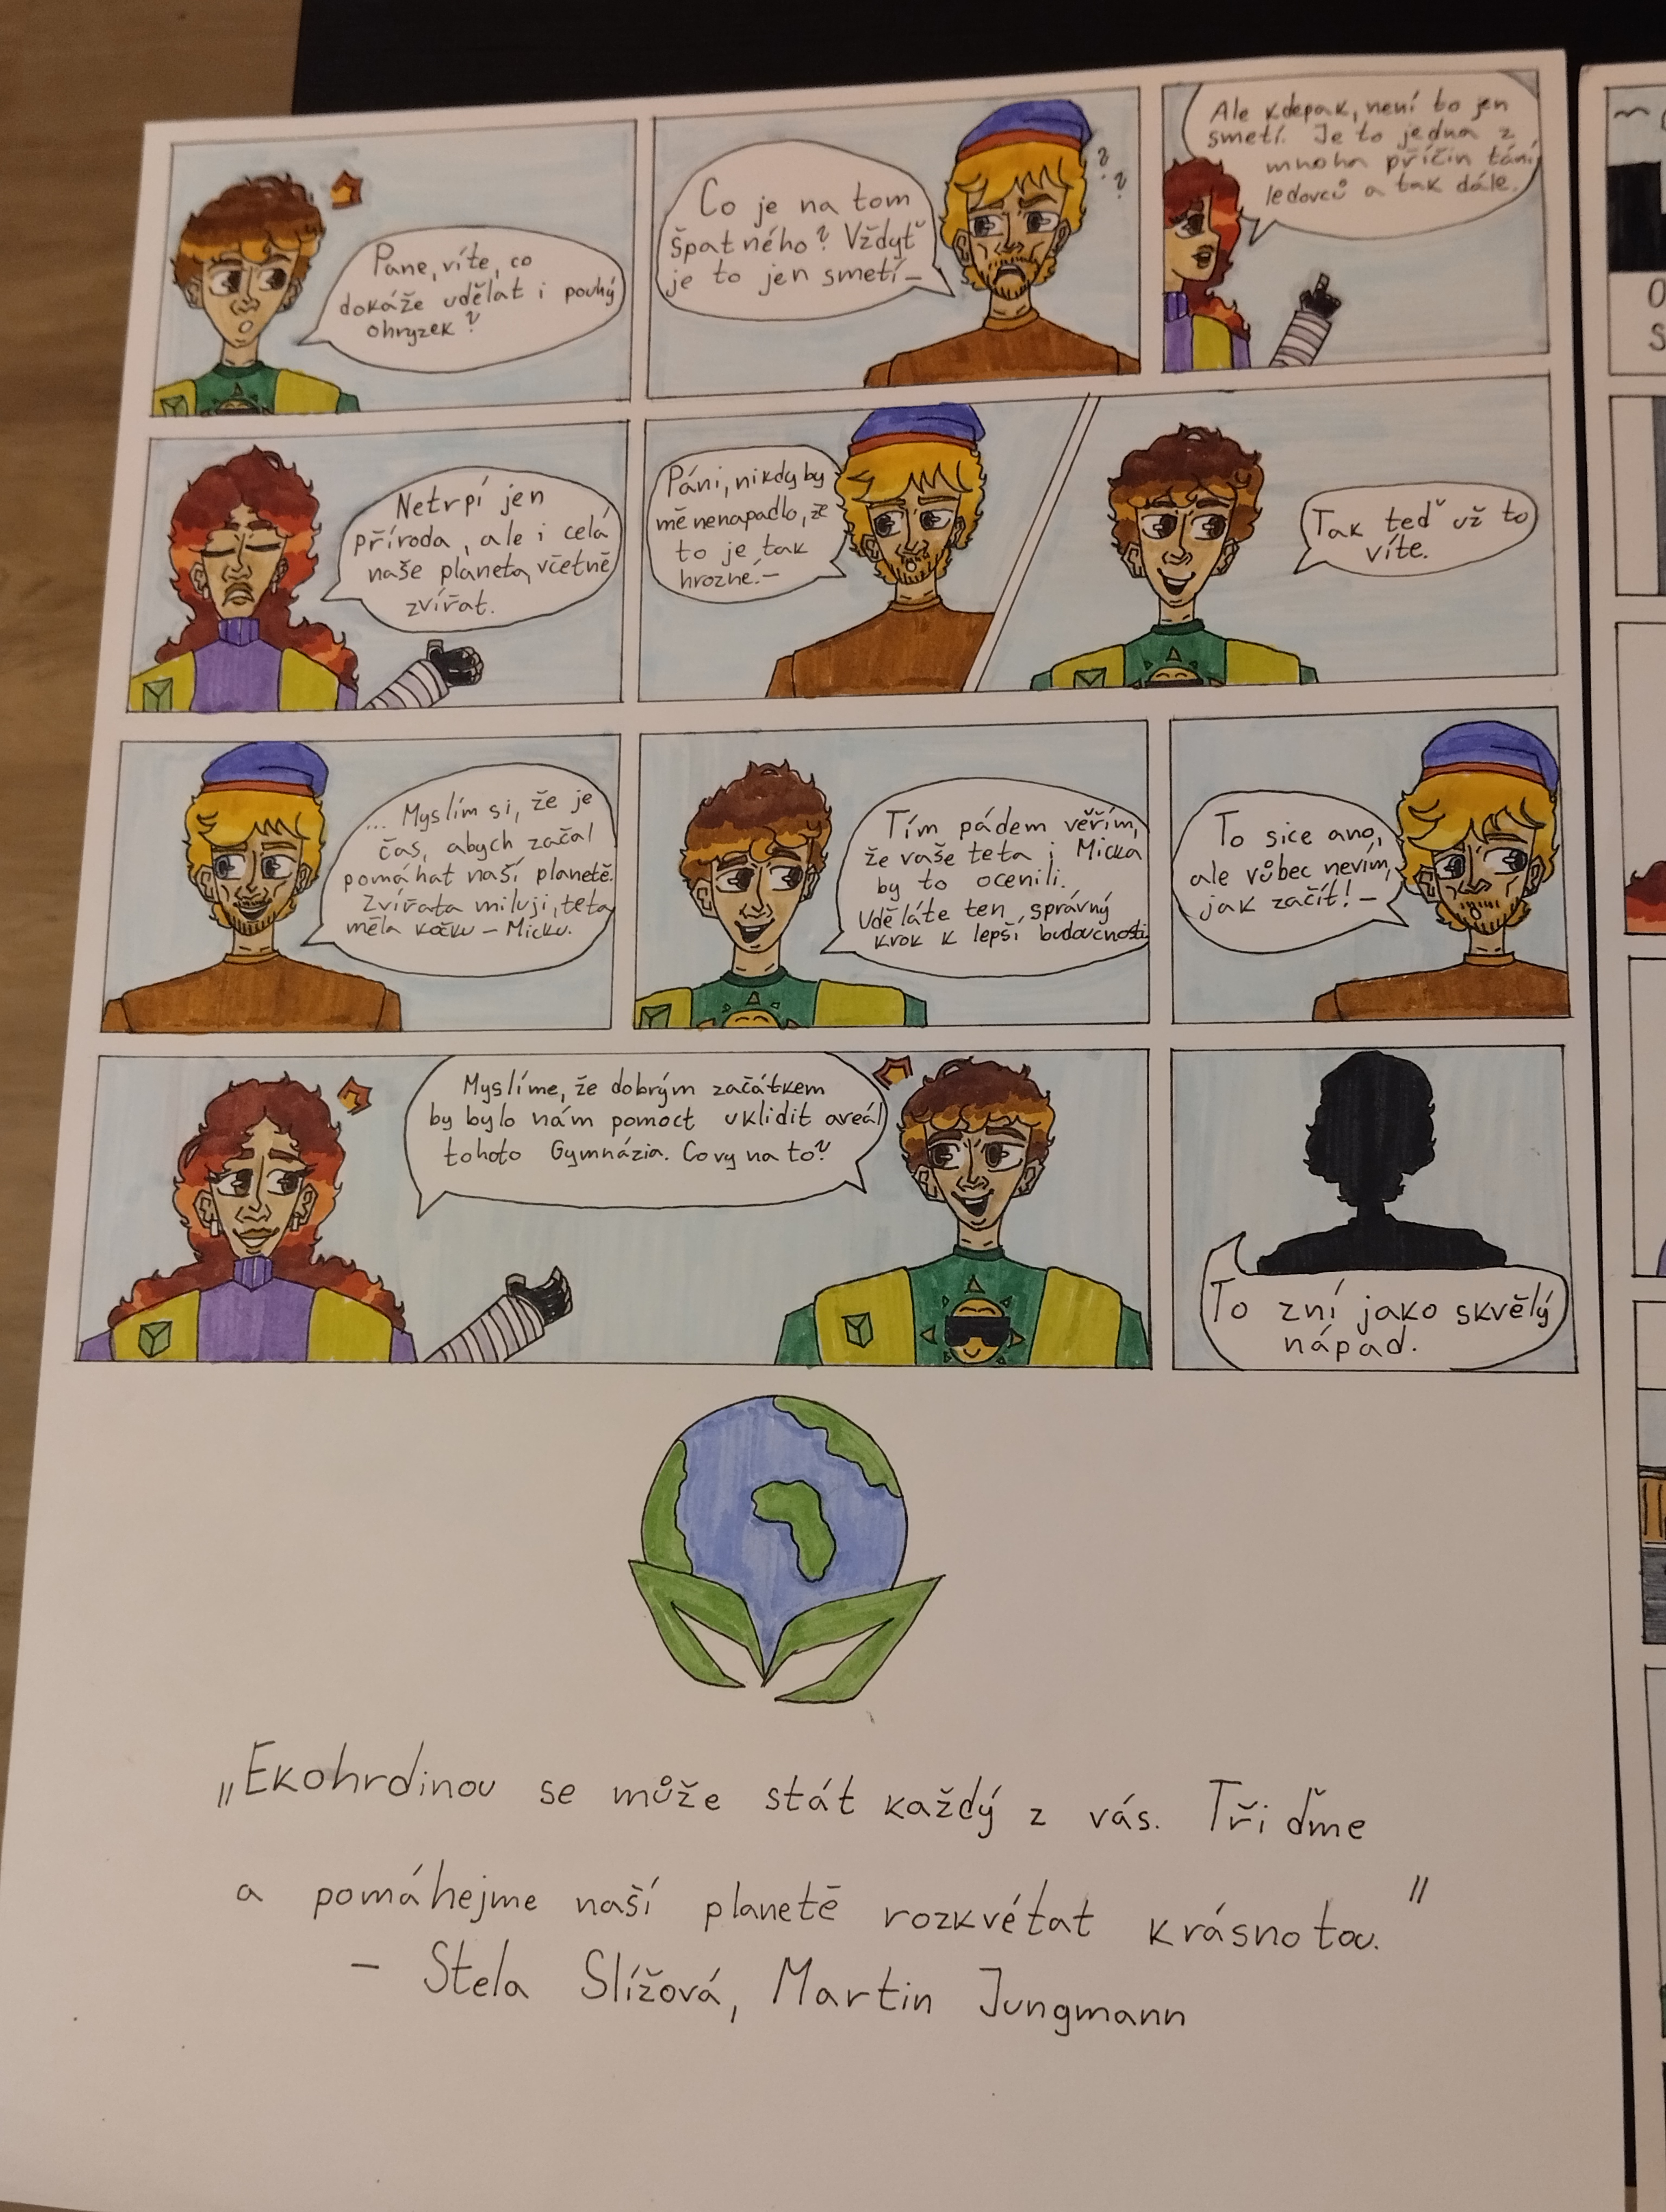 Pane, víte, co
dokáže udělat i pouhý
ohryzek?
Co je na tom
špatného? Vždyť
je to jen smetí–
Ale kdepak, není to jen
smetí. Je to jedna z
mnoha příčin tání
ledovců a tak dále.
Netrpí jen
příroda, ale i celá
naše planeta, včetně
zvířat.
Páni, nikdy by
mě nenapadlo, že
to je tak
hrozné.–
Tak teď už to
víte.
... Myslím si, že je
čas, abych začal
pomáhat naší planetě.
Zvířata miluji, teta
měla kočku – Micku.
Tím pádem věřím,
že vaše teta i Micka
by to ocenili.
Uděláte ten správný
krok k lepší budoucnosti
To sice ano,
ale vůbec nevím,
jak začít! –
Myslíme, že dobrým začátkem
by bylo nám pomoct uklidit areál
tohoto Gymnázia. Co vy na to?
To zní jako skvělý
nápad.
„Ekohrdinou se může stát každý z vás. Třiďme
a pomáhejme naší planetě rozkvétat krásnotou."
– Stela Slížová, Martin Jungmann
O
S